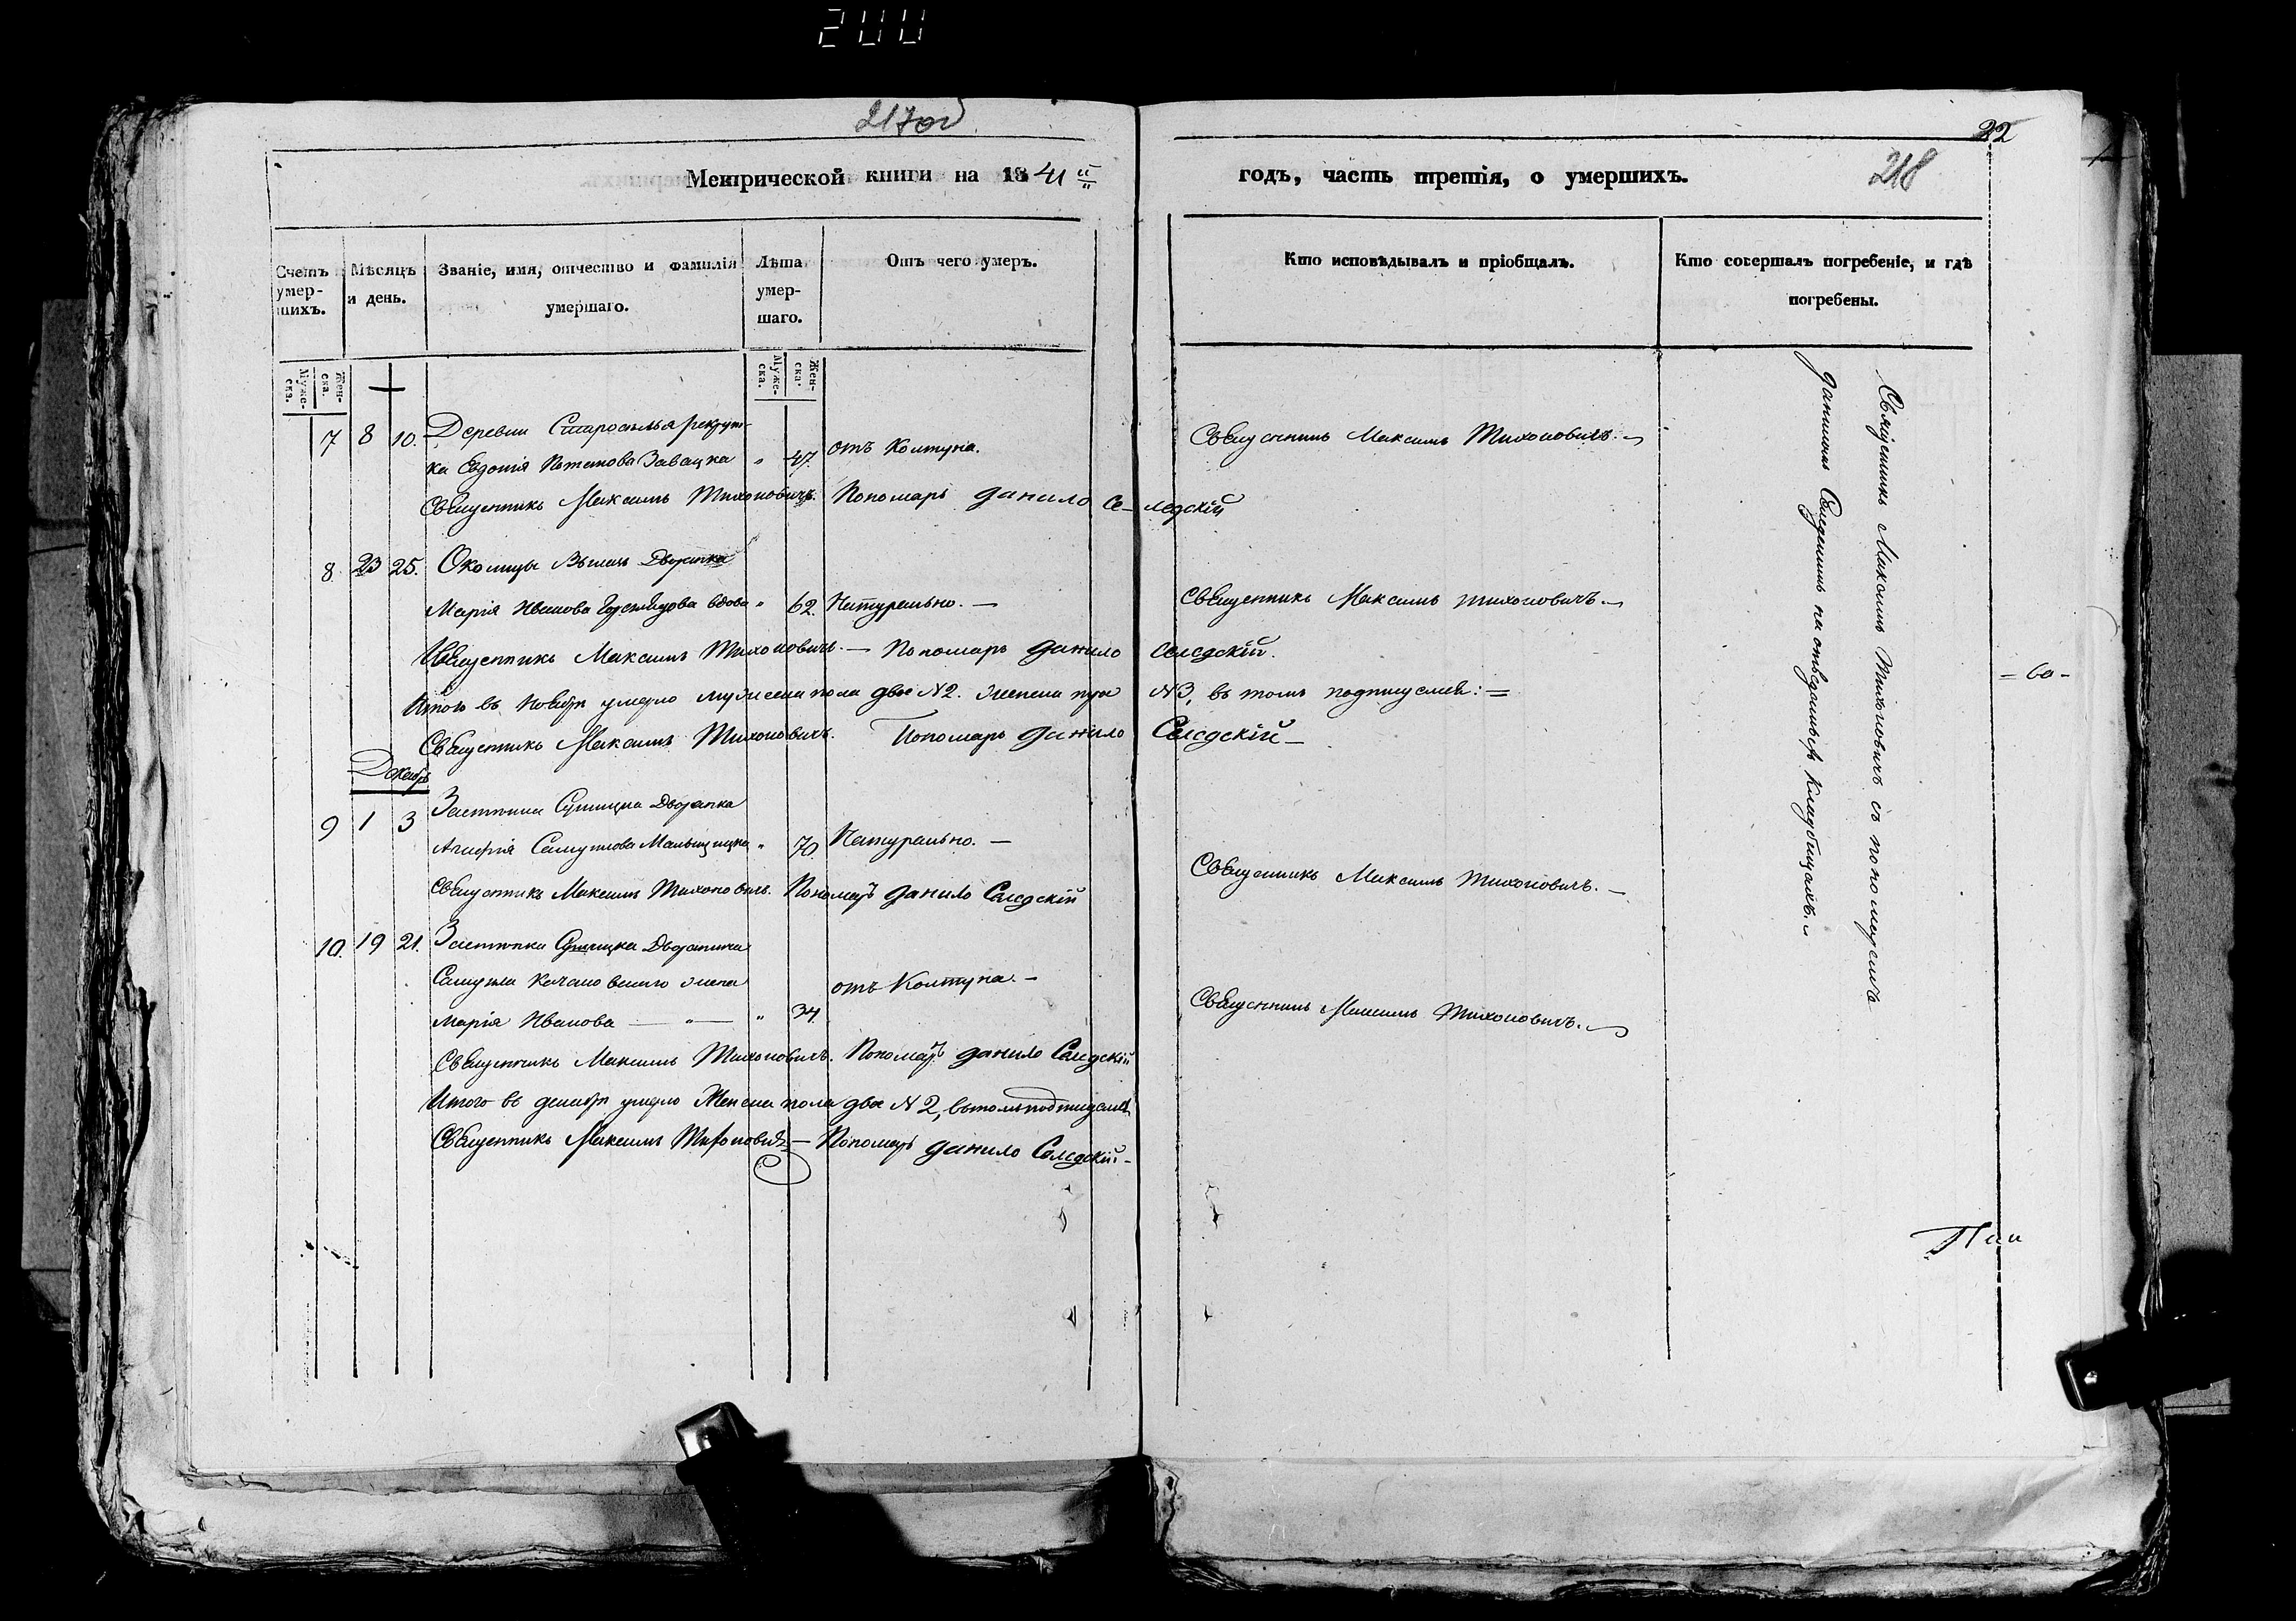 200
217об
22
218
Метрической книги на 1841й
годъ, часть третія, о умершихъ.
Счетъ умер-шихъ.
Мѣсяцъ и день.
Званіе, имя, отчество и фамилія умершаго.
Лѣта умер-шаго.
Отъ чего умеръ.
Кто исповѣдывалъ и пріобщалъ.
Кто совершалъ погребеніе, и гдѣ погребены.
Муже-ска.
Жен-ска.
Муже-ска.
Жен-ска.
7 8 10. Деревни Старосѣлья рекрут-
ка Евдокія Потапова Завацка " 47. отъ Колтуна.
Священникъ Максимъ Тихоновичъ.
Священникъ Максимъ Тихоновичъ. Пономарь Данило Селедскій
8. 23 25. Околицы Дворянка
Марія Иванова вдова " 62. Натурально.
Священникъ Максимъ Тихоновичъ.
Священникъ Максимъ Тихоновичъ. — Пономарь Данило Селедскій.
Итого въ Ноябрѣ умерло мужеска пола двое №2. женска три №3, въ томъ подпишемся:
Священникъ Максимъ Тихоновичъ. Пономарь Данило Селедскій
Декабрь
9 1 3 Застѣнка Дворянка
Самуилова " 70. Натурально.
Священникъ Максимъ Тихоновичъ.
Священникъ Максимъ Тихоновичъ. Пономарь Данило Селедскій
10. 19 21. Застѣнка Дворянина
Самуила жена
Марія Иванова — " — " 34. отъ Колтуна.
Священникъ Максимъ Тихоновичъ.
Священникъ Максимъ Тихоновичъ. Пономарь Данило Селедскій
Итого въ декабрѣ умерло Женска пола двѣ №2, въ томъ подпишемся
Священникъ Максимъ Тихоновичъ — Пономарь Данило Селедскій
Священникъ Максимъ Тихоновичъ съ пономаремъ
Даниломъ Селедскимъ на кладбищахъ.